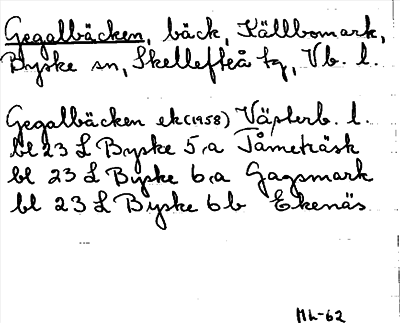 Gegalbäcken, bäck, Källbomark,
Byske sn, Skellefteå tg, Vb. l.
Gegalbäcken ek (1958) Västerb. l.
bl 23 L Byske 5, a Tåmeträsk
bl 23 L Byske 6, a Gagsmark
bl 23 L Byske 6 b Ekenäs
ML-62